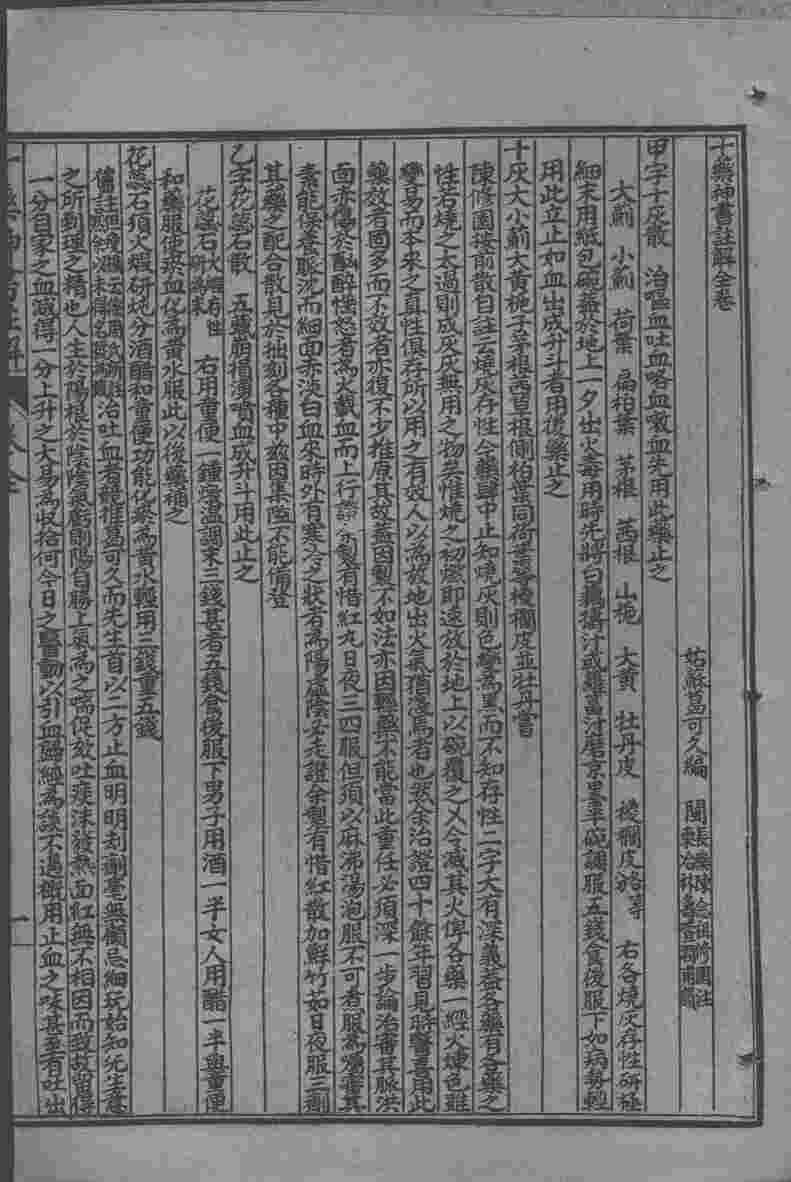 十藥神書註解全卷
姑蘇葛可久編 閩長樂陳念祖修園註
甲字十灰散 治嘔血吐血咯血嗽血先用此藥止之
大薊 小薊 荷葉 扁柏葉 茅根 茜根 山梔 大黃 牡丹皮 椶櫚皮各等 右各燒灰存性研極
細末用紙包碗蓋於地上一夕出火毒用時先將白藕搗汁或蘿蔔汁磨京墨半碗調服五錢食後服下如病勢輕
用此立止如血出成升斗者用後藥止之
十灰大小薊大黃梔子茅根茜草根側柏葉同荷葉等椶櫚皮並牡丹嘗
陳修園按前散自註云燒灰存性今藥肆中止知燒灰則色變為黑而不知存性二字大有深義蓋各藥有各藥之
性若燒之太過則成灰灰無用之物矣惟燒之初燃即速放於地上以碗覆之又令滅其火俾各藥一經火煉色雖
變易而本來之真性俱存所以用之有效人以為放地出火氣猶淺焉者也然余治證四十餘年習見時醫喜用此
藥效者固多而不效者亦復不少推原其故蓋因製不如法亦因輕藥不能當此重任必須深一步論治審其脈洪
面赤傷於酗醉性怒者為火載血而上行證余製有惜紅丸日夜三四服但須以麻沸湯泡服不可煮服為囑審其
素能保養脈沈而細面赤淡白血來時外有寒冷之狀者為陽虛陰必走證余製有惜紅散加鮮竹如日夜服三劑
其藥之配合散見於拙刻各種中茲因集隘不能備登
乙字花蕊石散 五臟崩損湧噴血成升斗用此止之
花蕊石火煅存性研為末 右用童便一鍾燉溫調末三錢甚者五錢食後服下男子用酒一半女人用醋一半與童便
和藥服使瘀血化為黃水服此以後藥補之
花蕊石須火煅研吮分酒醋和童便功能化瘀為黃水輕用三錢重五錢
治吐血者競推葛可久而先生首以二方止血明明刦劑毫無顧忌細玩始知先生意
之所到理之精也人生於陽根於陰陰氣虧則陽自勝上氣為之喘促欬吐痰沫發熱面紅無不相因而致故留得
一分自家之血減得一分上升之火易為收拾何今日之醫動以引血歸經為談不過概用止血之味甚至有吐出